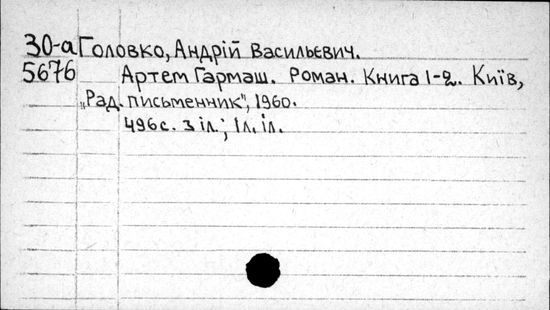 30-а Головко, Андрій Васильєвич.
5676 Артем Гармаш. Роман. Книга 1-2. Київ,
„Рад. письменник", 1960.
496с. з іл.; 1л. іл.